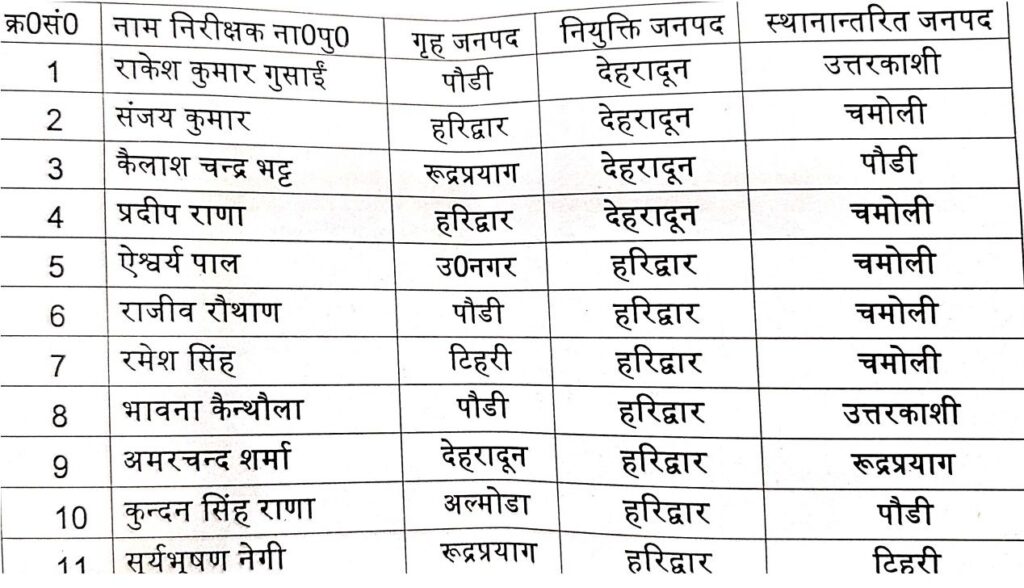 क्र0सं0 नाम निरीक्षक ना0पु0 गृह जनपद नियुक्ति जनपद स्थानान्तरित जनपद
1 राकेश कुमार गुसाईं पौडी देहरादून उत्तरकाशी
2 संजय कुमार हरिद्वार देहरादून चमोली
3 कैलाश चन्द्र भट्ट रूद्रप्रयाग देहरादून पौडी
4 प्रदीप राणा हरिद्वार देहरादून चमोली
5 ऐश्वर्य पाल उ0नगर हरिद्वार चमोली
6 राजीव रौथाण पौडी हरिद्वार चमोली
7 रमेश सिंह टिहरी हरिद्वार चमोली
8 भावना कैन्थौला पौडी हरिद्वार उत्तरकाशी
9 अमरचन्द शर्मा देहरादून हरिद्वार रूद्रप्रयाग
10 कुन्दन सिंह राणा अल्मोडा हरिद्वार पौडी
11 सूर्यभूषण नेगी रूद्रप्रयाग हरिद्वार टिहरी